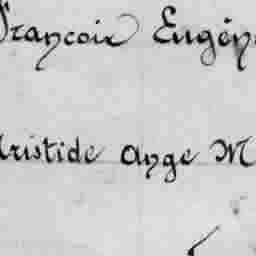 François Eugèn
Aristide Ange M